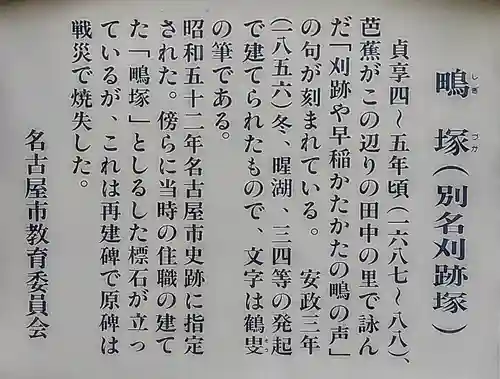 鴫塚(別名刈跡塚)
しぎづか
貞享四～五年頃(一六八七～八八)、
芭蕉がこの辺りの田中の里で詠ん
だ「刈跡や早稲かたかたの鴫の声」
の句が刻まれている。 安政三年
(一八五六)冬、暒湖、三四等の発起
で建てられたもので、文字は鶴叟
の筆である。
昭和五十二年名古屋市史跡に指定
された。傍らに当時の住職の建て
た「鴫塚」としるした標石が立っ
ているが、これは再建碑で原碑は
戦災で焼失した。
名古屋市教育委員会